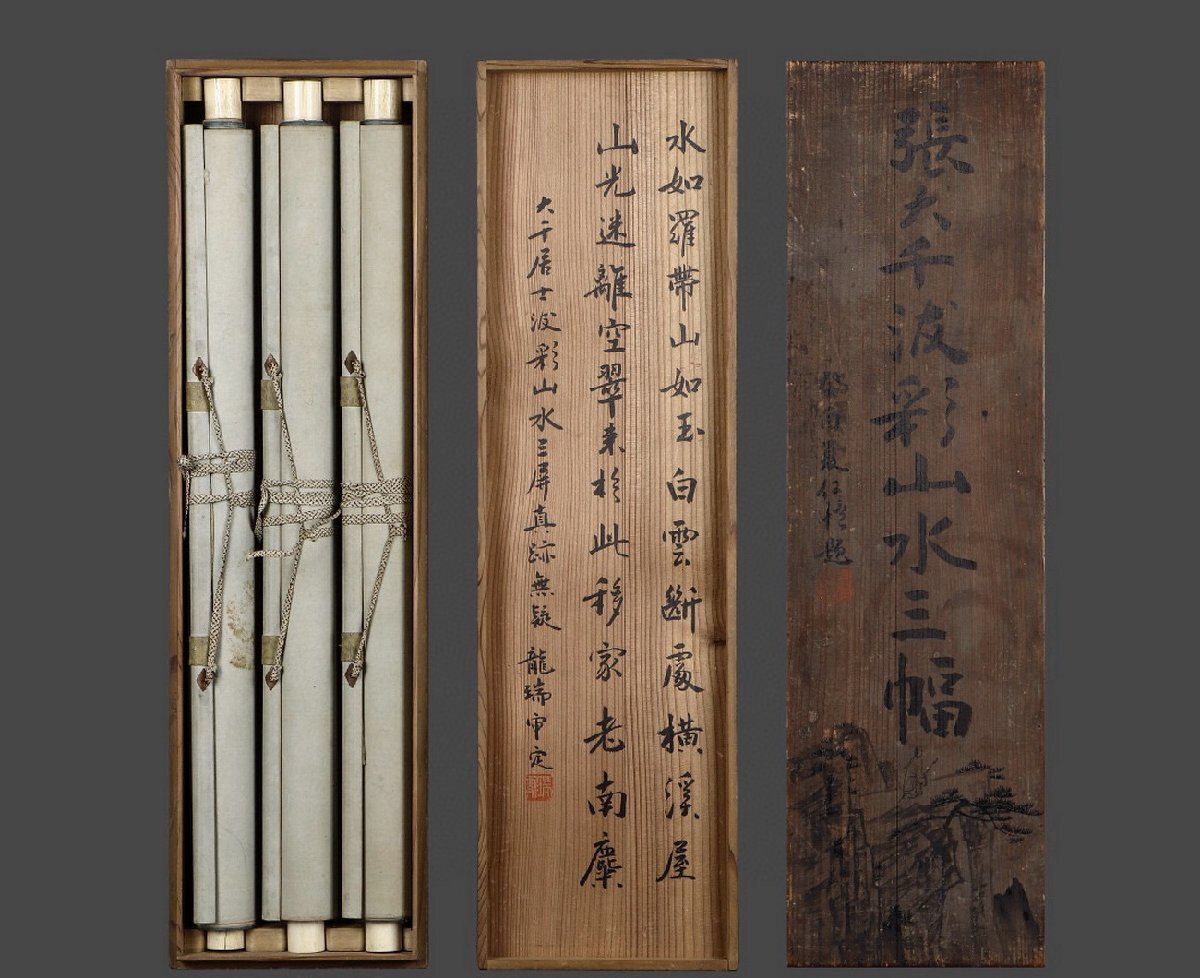 張大千泼彩山水三幅
題
水如羅帶山如玉白雲斷處橫溪屋
山光迷離空翠来於此移家老南麋
大千居士泼彩山水三屏真跡無疑 龍瑞审定